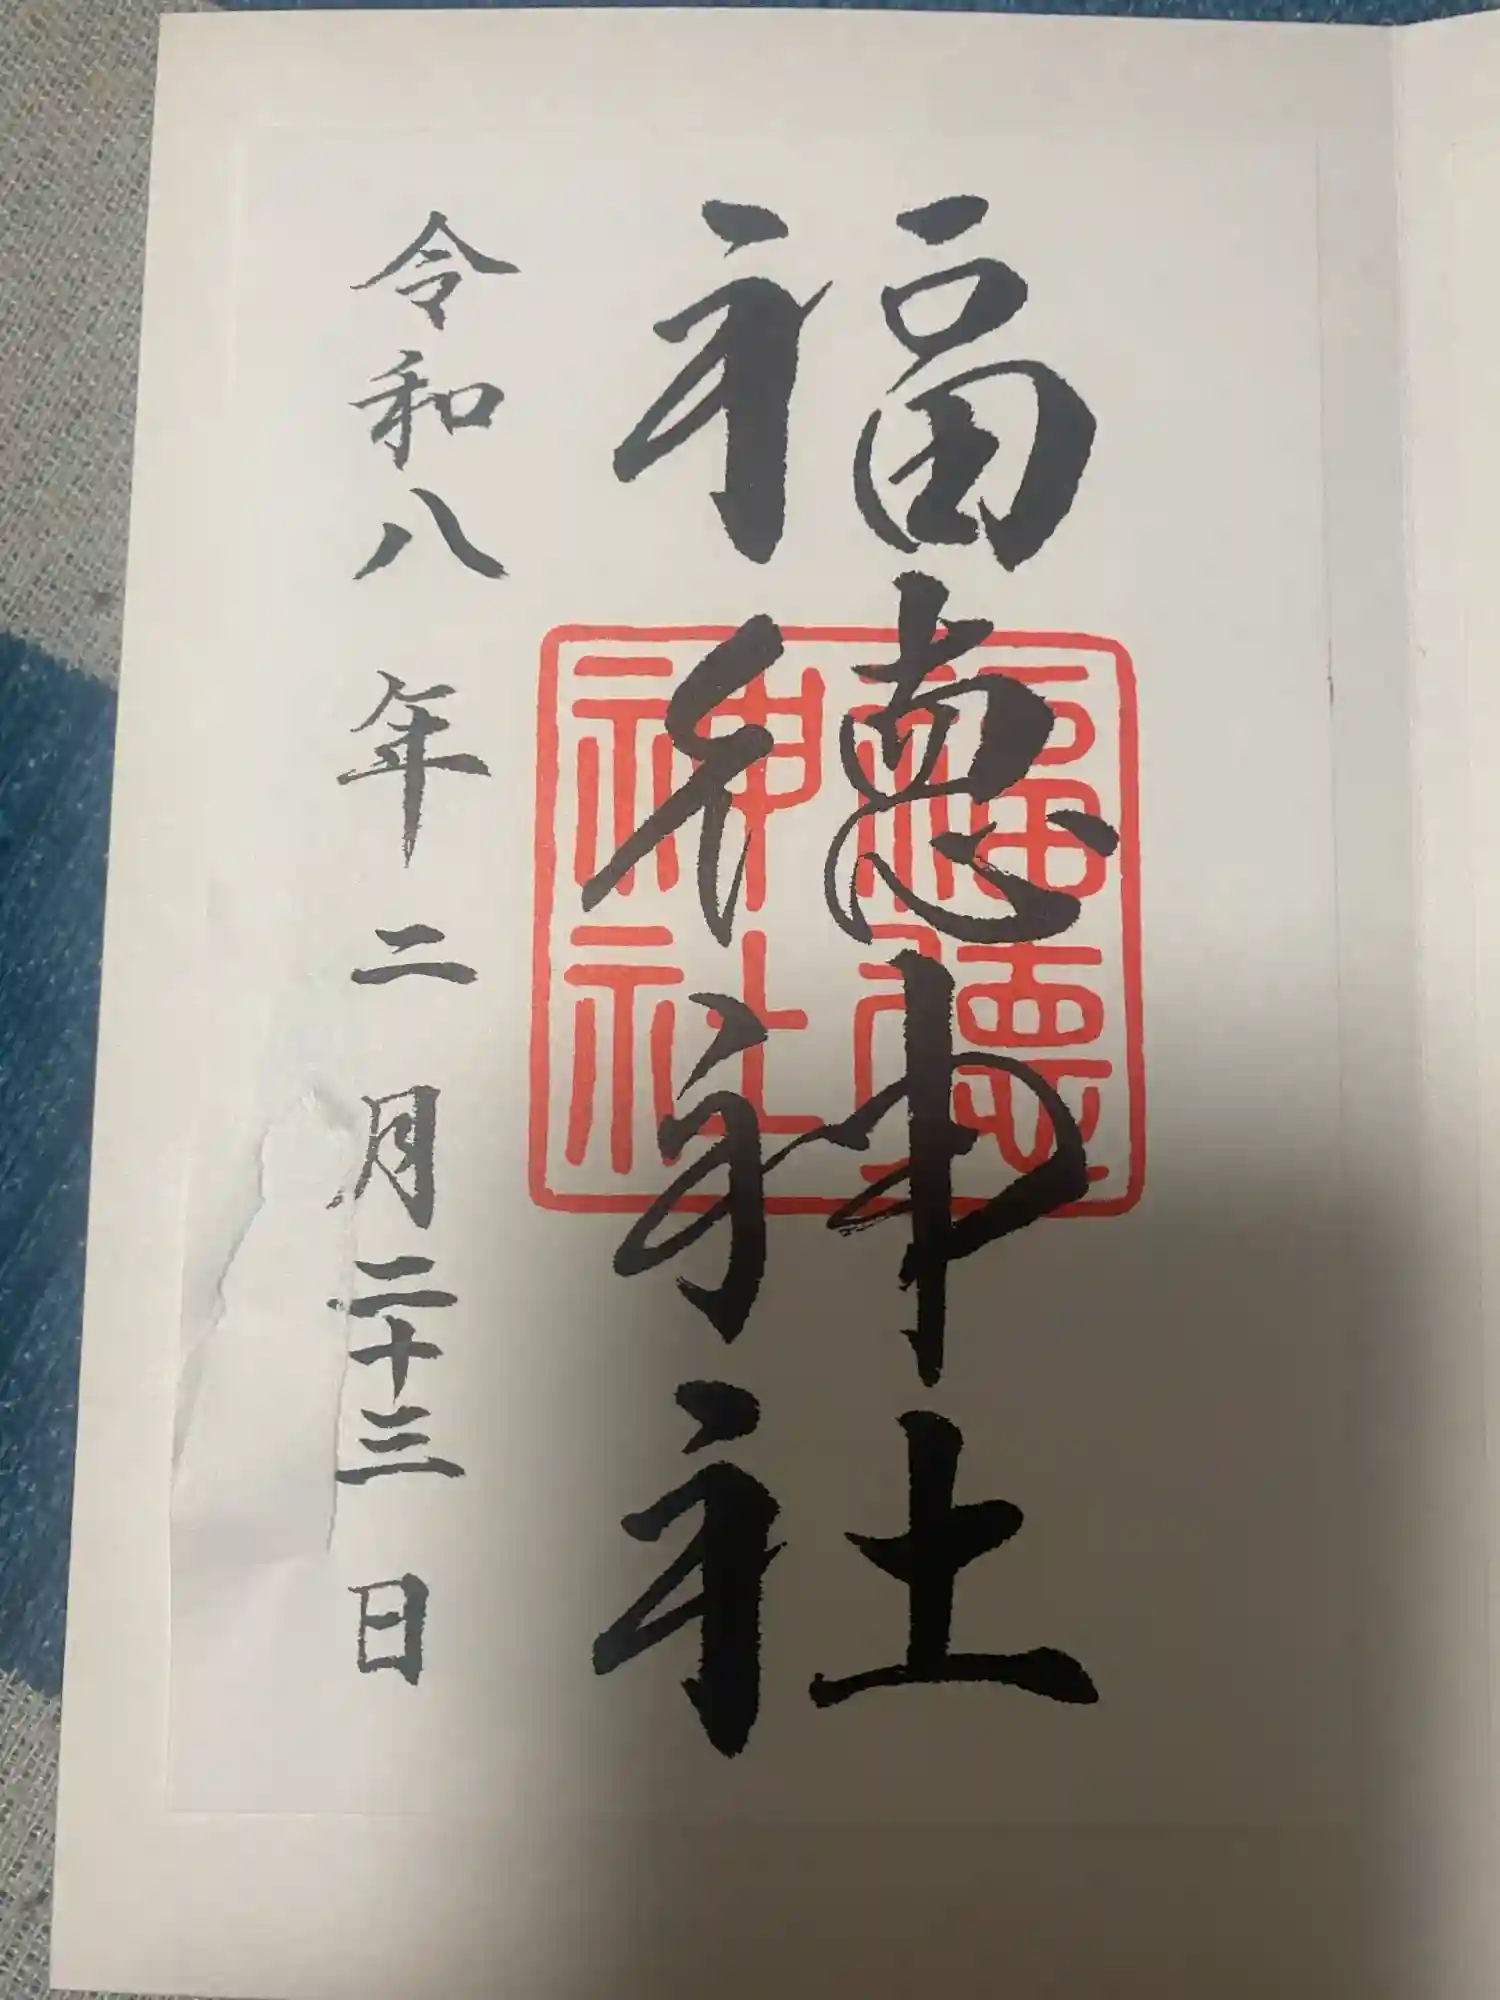 福徳神社
福德神社
令和八年二月二十三日